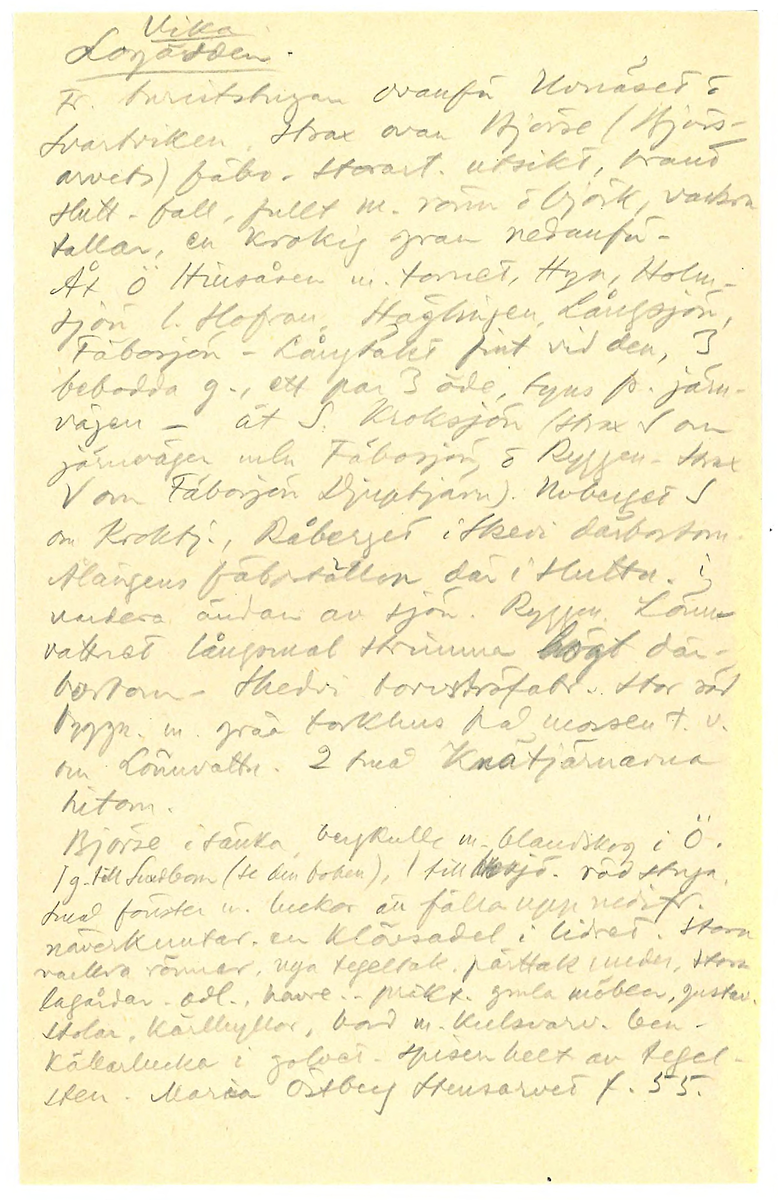 Vika
Logärden.
Fr. turiststugan ovanför Hornäset o
Svartviken. Strax ovan Bjorse (Bjors-
arvets) fäbo- storart. utsikt, brant
slutt- fall, fullt m. rönn o björk, vackra
tallar, en krokig gran nedanför-
Åt Ö Hinsåsen m. tornet, Hyn, Holm-
sjön l. Hofran, Stäglingen, Långsjön,
Fäbosjön - Långtäkt fint vid den, 3
bebodda g., ett par 3 öde, syns p. järn-
vägen - åt S. Kroksjön (strax S om
järnvägen mln Fäbosjön o Ryggen- strax
V om Fäbosjön Djuptjärn). Noberget S
om Kroktj., Råberget i Skedvi därbortom.
Älängens fäboställen där i slutta. i
vardera ändan av sjön. Ryggen. Lönn-
vattnet långsmal strimma högt där-
bortom- Skedvi torvströfabr. Stor röd
byggn. m. gråa torkhus på mossen t. v.
om Lönnvattn. 2 små Knätjärnarna
hitom.
Bjorse i sänka, bergkulle m. blandskog i Ö.
1 g. till Sundborn (se den boken), 1 till sjö. röd stuga,
små fönster m. luckor att fälla upp nedifr.
näverkuntar. en klövsadel i lidret. Stora
vackra rönnar, nya tegeltak. pärttak under, stora
lagårdar. odl., havre.. präkt. gmla möbler, gustav.
stolar, kärlhyllor, bord m. kulsvarv. ben-
källarlucka i golvet- spisen helt av tegel-
sten. Maria Östberg Stensarvet f. 55.